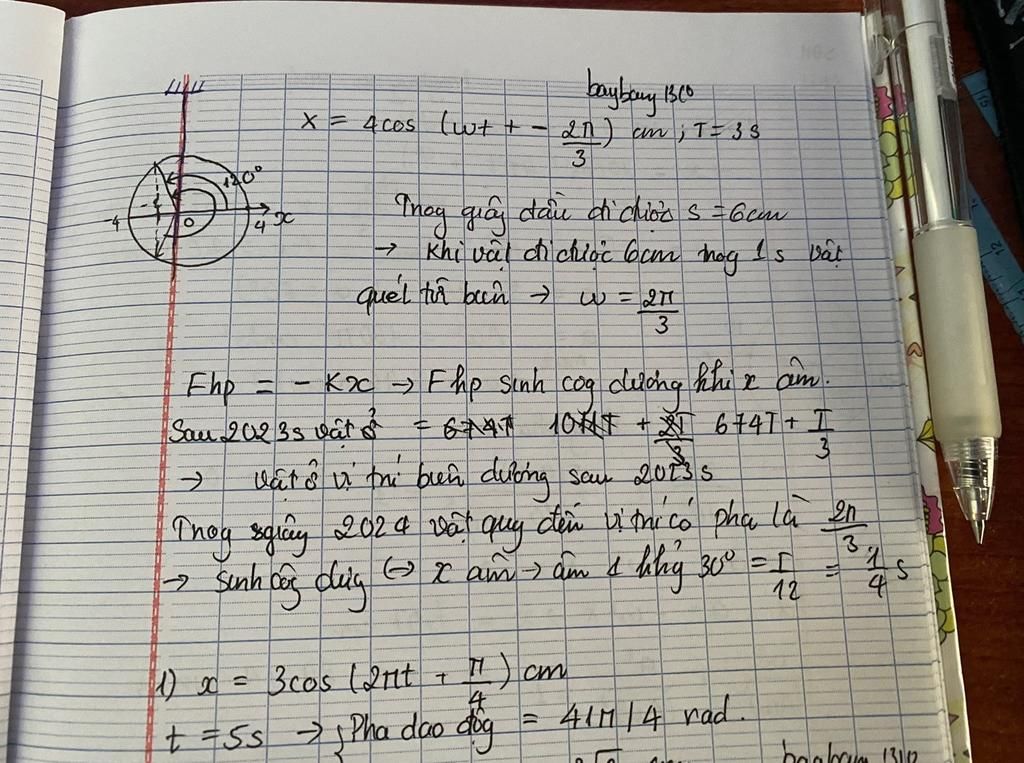 baybany 130
x = 4cos (ωt + - 2π/3) cm ; T = 3s
120°
-4
O
4
x
Trog giây đầu đi được s = 6cm
→ Khi vật đi được 6cm trog 1s vật
quét từ biên → ω = 2π/3
Fhp = - Kx → Fhp sinh cog dương khi x âm.
Sau 2023s vật ở = 674T + T/3
→ vật ở vị trí biên dương sau 2023s
Trog giây 2024 vật quy đến vị trí có pha là 2π/3
→ sinh côg dưg ↔ x âm → âm 1 khg 30° = T/12 = 1/4 s
1) x = 3cos (2πt + π/4) cm
t = 5s → { Pha dao độg = 41π/4 rad.